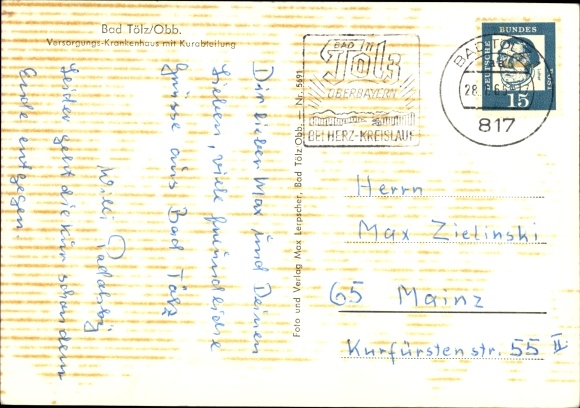 Bad Tölz/Obb.
Versorgungs-Krankenhaus mit Kurabteilung
Dir lieber Max und Deinen
Lieben, viele freundliche
Grüsse aus Bad Tölz
Willi
Leider geht die Kur schon dem
Ende entgegen.
Foto und Verlag Max Lerpscher, Bad Tölz/Obb. — Nr. 5891
BAD
Tölz
OBERBAYERN
BEI HERZ-KREISLAUF
BAD TÖLZ
28
817
DEUTSCHE BUNDES
15
Herrn
Max Zielinski
65 Mainz
Kurfürstenstr. 55 II